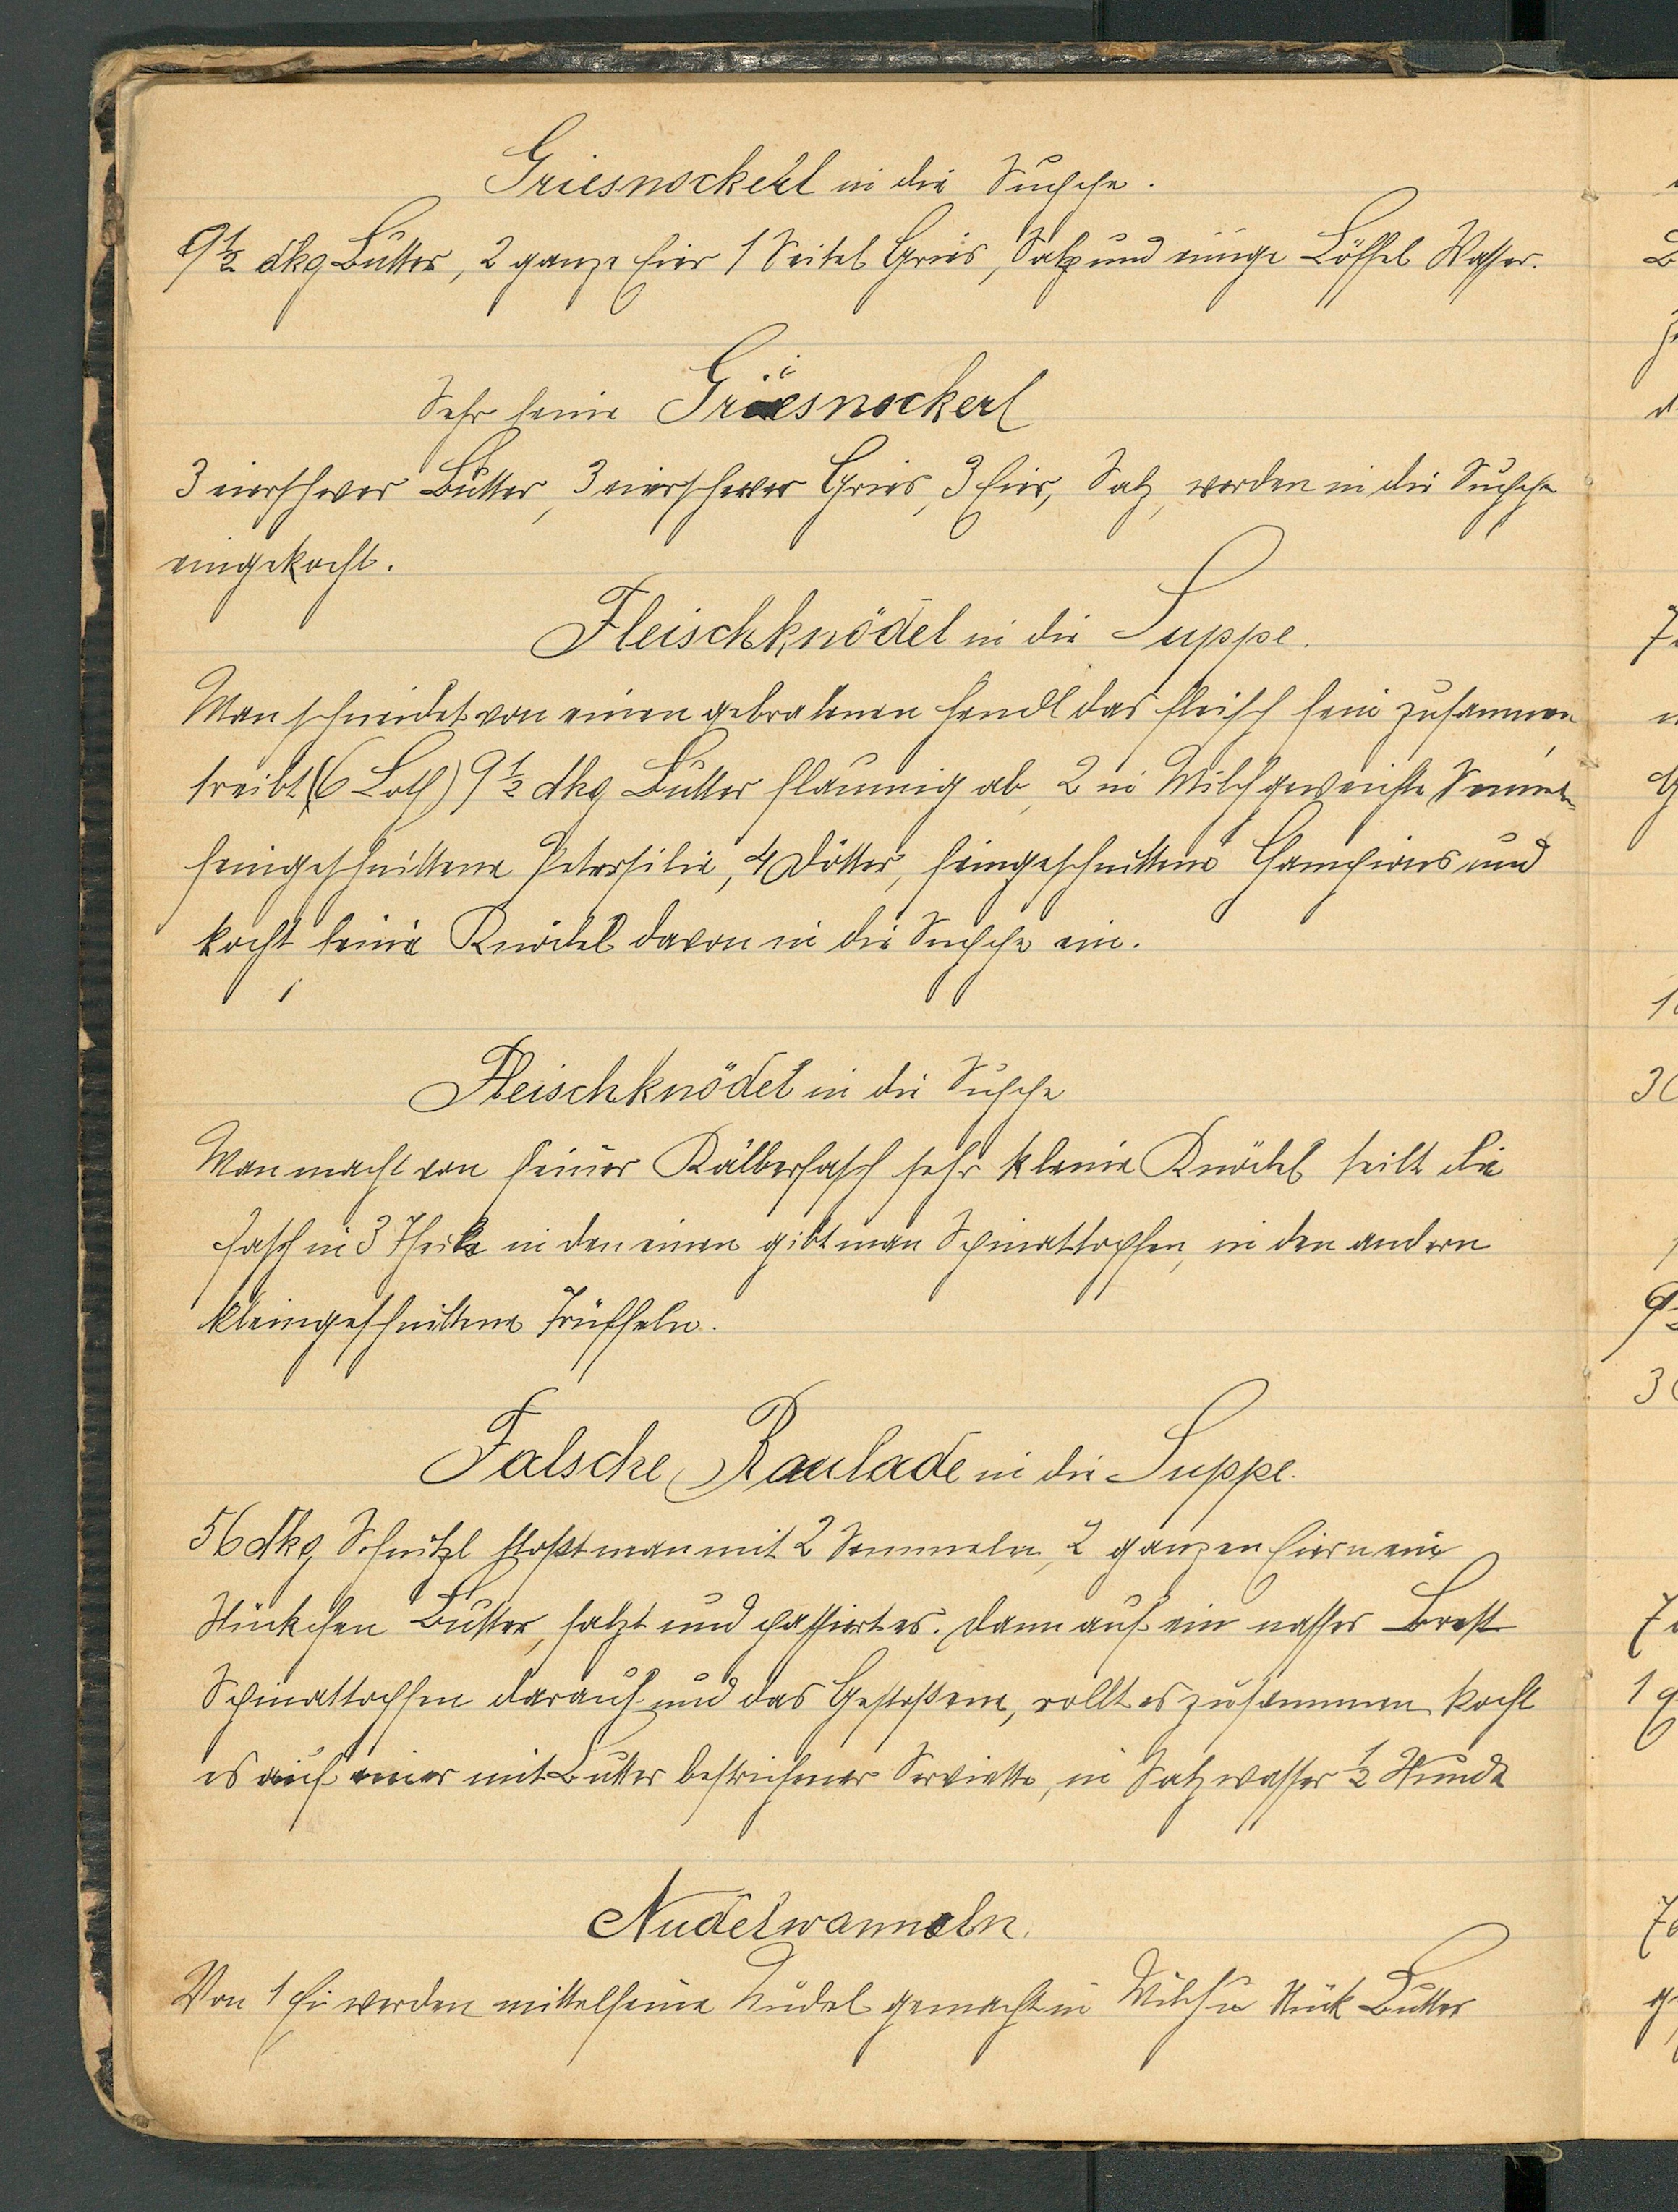 Griesnockerl in die Suppe.
9½ dkg Butter, 2 ganze Eier 1 Seitel Gries, Salz und einige Löffel Wasser.
Sehr feine Griesnockerl
3 eierschwer Butter, 3 eierschwer Gries, 3 Eier, Salz, werden in die Suppe
eingekocht.
Fleischknödel in die Suppe.
Man schneidet von einen gebratenen Hendl das Fleisch fein zusammen,
treibt (6 Loth) 9½ dkg Butter flaumig ab, 2 in Milch geweichte Semmeln
feingeschnittene Petersilie, 4 Dötter, feingeschnittene Champions und
kocht kleine Knödel davon in die Suppe ein.
Fleischknödel in die Suppe
Man macht von feiner Kälberfasch sehr kleine Knödel teilt die
Fasch in 3 Theile in den einen gibt man Spinattopfen, in den andern
kleingeschnittene Trüffeln.
Falsche Raulade in die Suppe.
56 dkg Schnitzl stoßt man mit 2 Semmeln, 2 ganzen Eiern ein
Stückchen Butter, salzt und passiert es. Dann auf ein nasses Brett
Spinattopfen darauf und das Gestoßene, rollt es zusammen kocht
es auf einer mit Butter bestrichener Serviette, in Salzwasser ½ Stunde
Nudelwanneln.
Von 1 Ei werden mittelfeine Nudel gemacht in Milch u Stück Butter